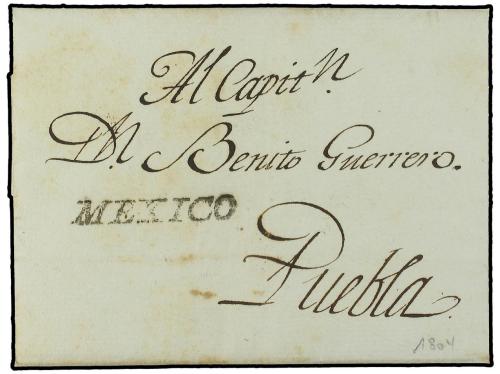 Al Capitn.
Dn. Benito Guerrero.
MEXICO
Puebla.
1804